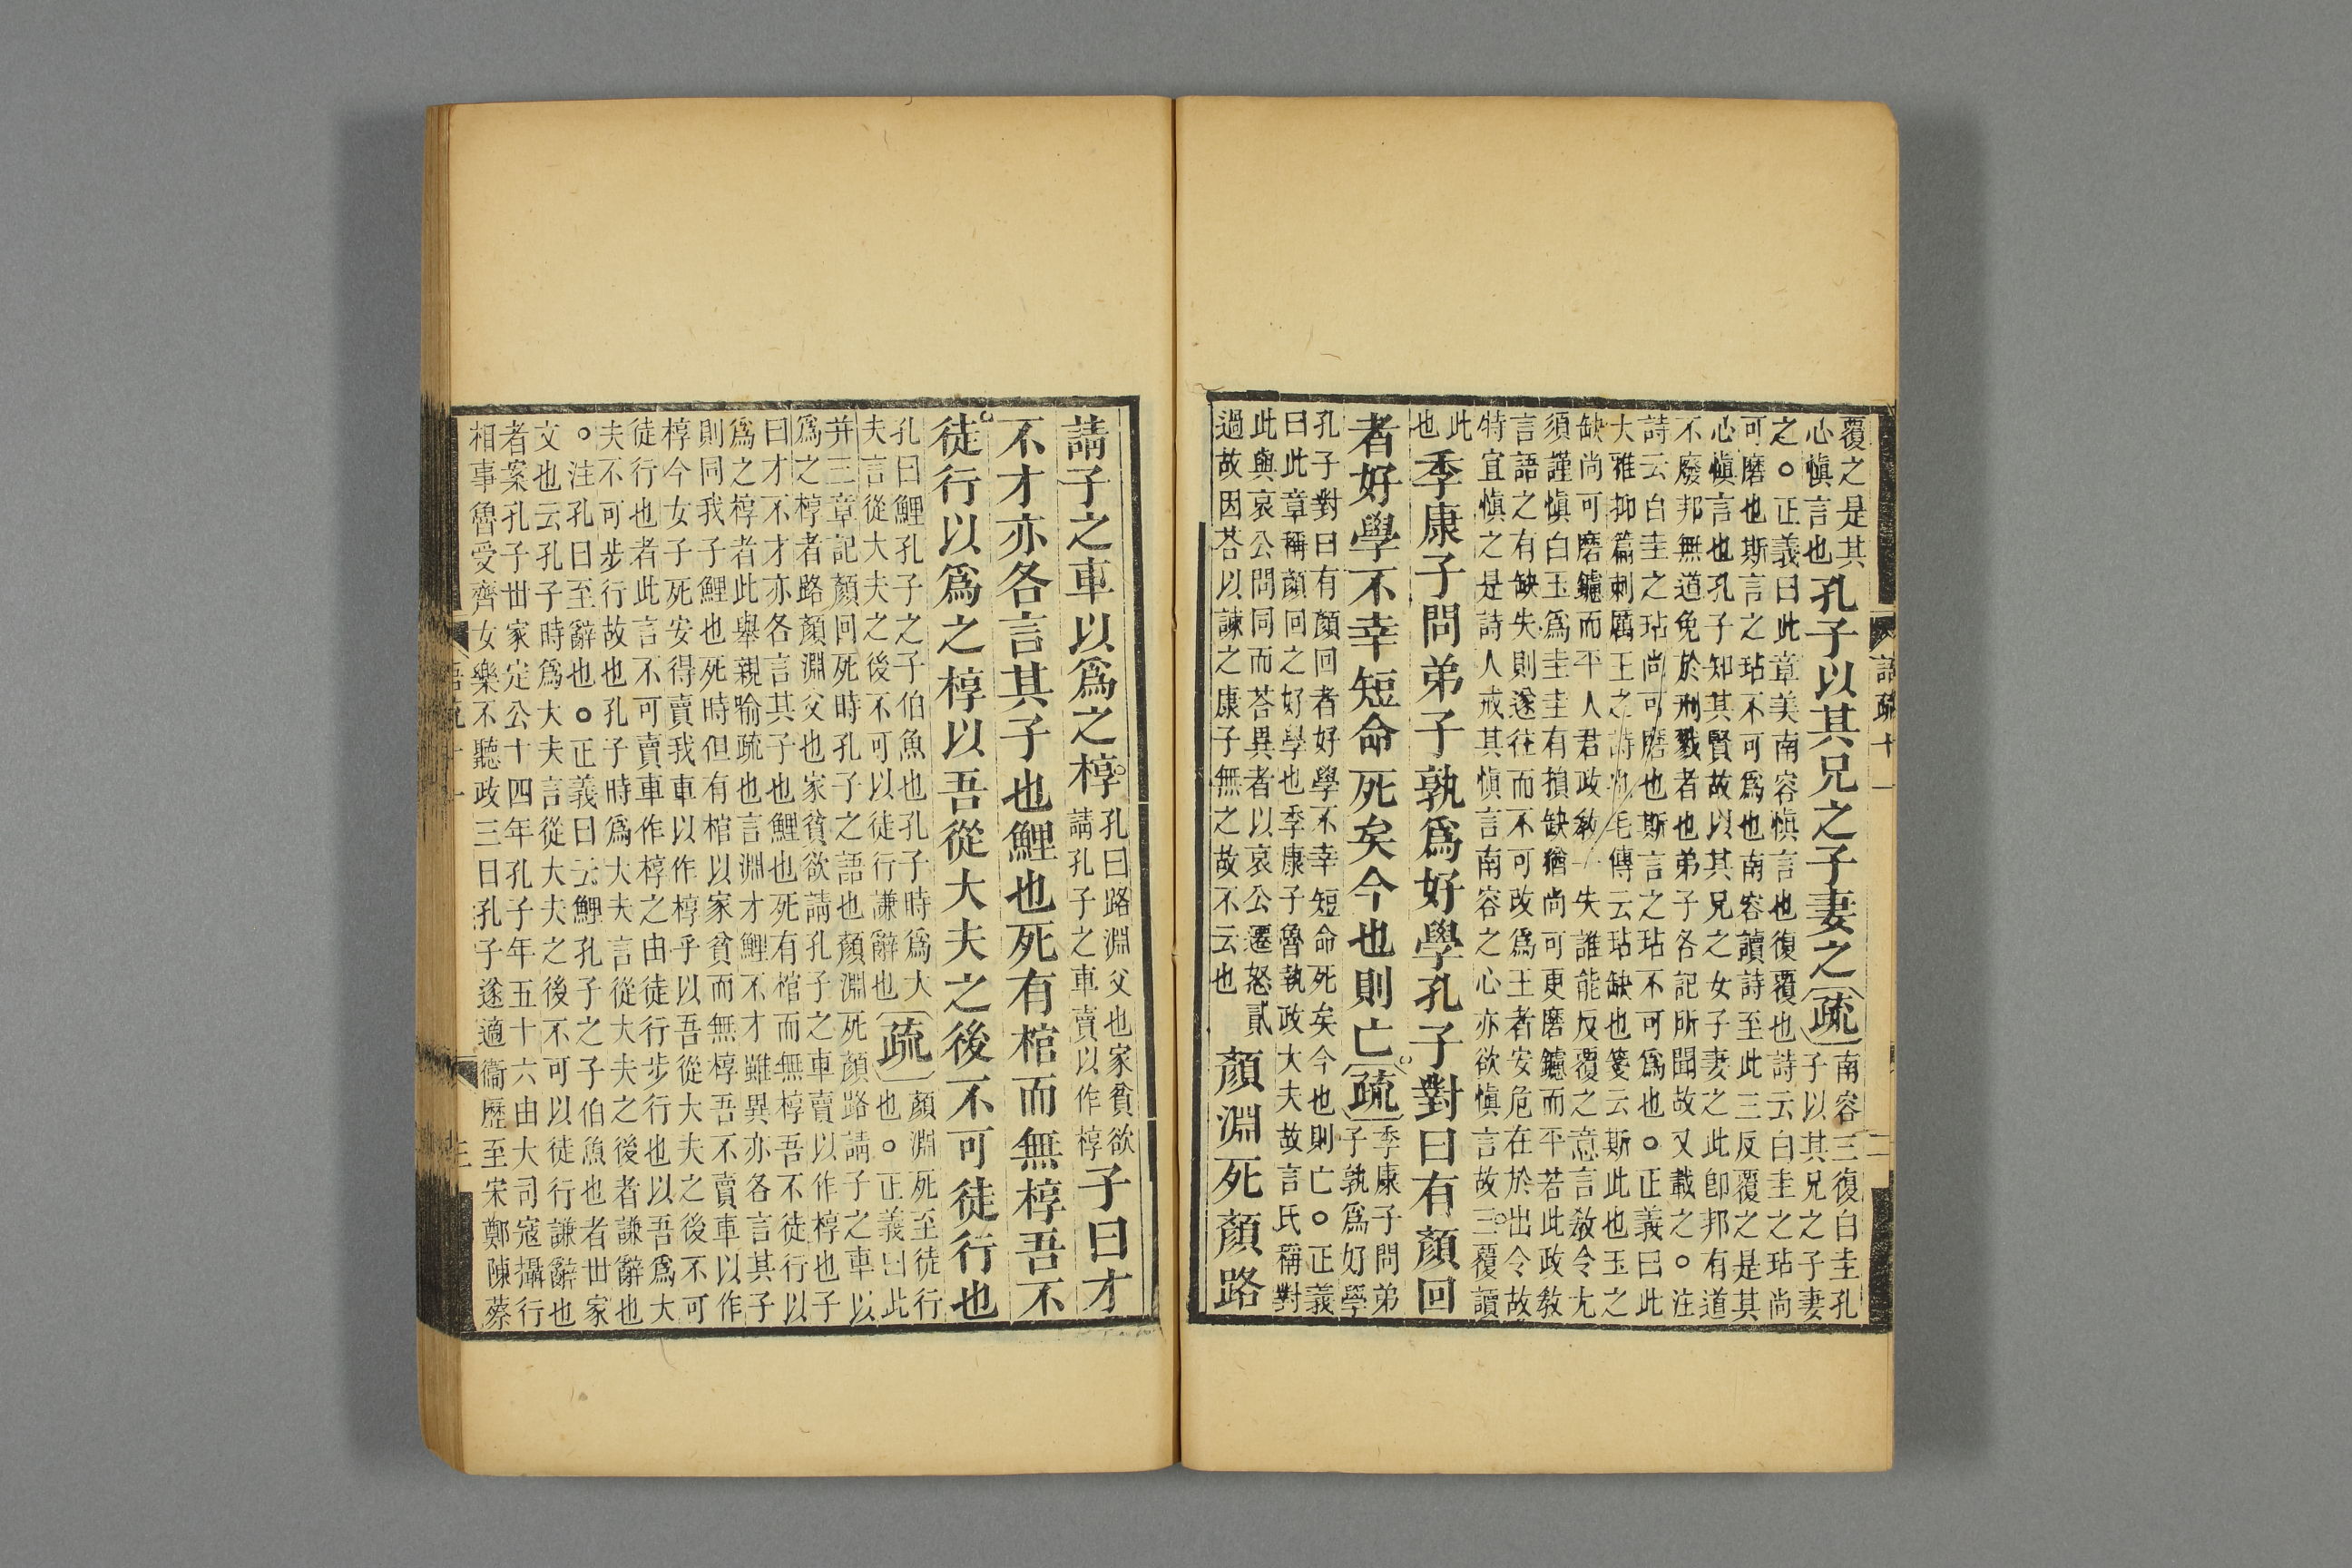 覆之是其
心愼言也孔子以其兄之子妻之疏南容三復白圭孔
子以其兄之子妻
之○正義曰此章美南容愼言也復覆也詩云白圭之玷尚
可磨也斯言之玷不可爲也南容讀詩至此三反覆之是其
心愼言也孔子知其賢故以其兄之女子妻之此卽邦有道
不廢邦無道免於刑戮者也弟子各記所聞故又載之○注
詩云白圭之玷尚可磨也斯言之玷不可爲也○正義曰此
大雅抑篇刺厲王之詩也毛傳云玷缺也箋云斯此也玉之
缺尚可磨鑢而平人君政敎一失誰能反覆之意言敎令尤
須謹愼白玉爲圭圭有損缺猶尚可更磨鑢而平若此政敎
言語之有缺失則遂往而不可改爲王者安危在於出令故
特宜愼之是詩人戒其愼言南容之心亦欲愼言故三覆讀
此
也季康子問弟子孰爲好學孔子對曰有顏回
者好學不幸短命死矣今也則亡疏季康子問弟
子孰爲好學
孔子對曰有顏回者好學不幸短命死矣今也則亡○正義
曰此章稱顏回之好學也季康子魯執政大夫故言氏稱對
此與哀公問同而荅異者以哀公遷怒貳
過故因荅以諫之康子無之故不云也顏淵死顏路
請子之車以爲之椁孔曰路淵父也家貧欲
請孔子之車賣以作椁子曰才
不才亦各言其子也鯉也死有棺而無椁吾不
徒行以爲之椁以吾從大夫之後不可徒行也
孔曰鯉孔子之子伯魚也孔子時爲大
夫言從大夫之後不可以徒行謙辭也疏顏淵死至徒行
也○正義曰此
幷三章記顏回死時孔子之語也顏淵死顏路請子之車以
爲之椁者路顏淵父也家貧欲請孔子之車賣以作椁也子
曰才不才亦各言其子也鯉也死有棺而無椁吾不徒行以
爲之椁者此舉親喻疏也言淵才鯉不才雖異亦各言其子
則同我子鯉也死時但有棺以家貧而無椁吾不賣車以作
椁今女子死安得賣我車以作椁乎以吾從大夫之後不可
徒行也者此言不可賣車作椁之由徒行步行也以吾爲大
夫不可步行故也孔子時爲大夫言從大夫之後者謙辭也
○注孔曰至辭也○正義曰云鯉孔子之子伯魚也者世家
文也云孔子時爲大夫言從大夫之後不可以徒行謙辭也
者案孔子世家定公十四年孔子年五十六由大司寇攝行
相事魯受齊女樂不聽政三日孔子遂適衞歷至宋鄭陳蔡